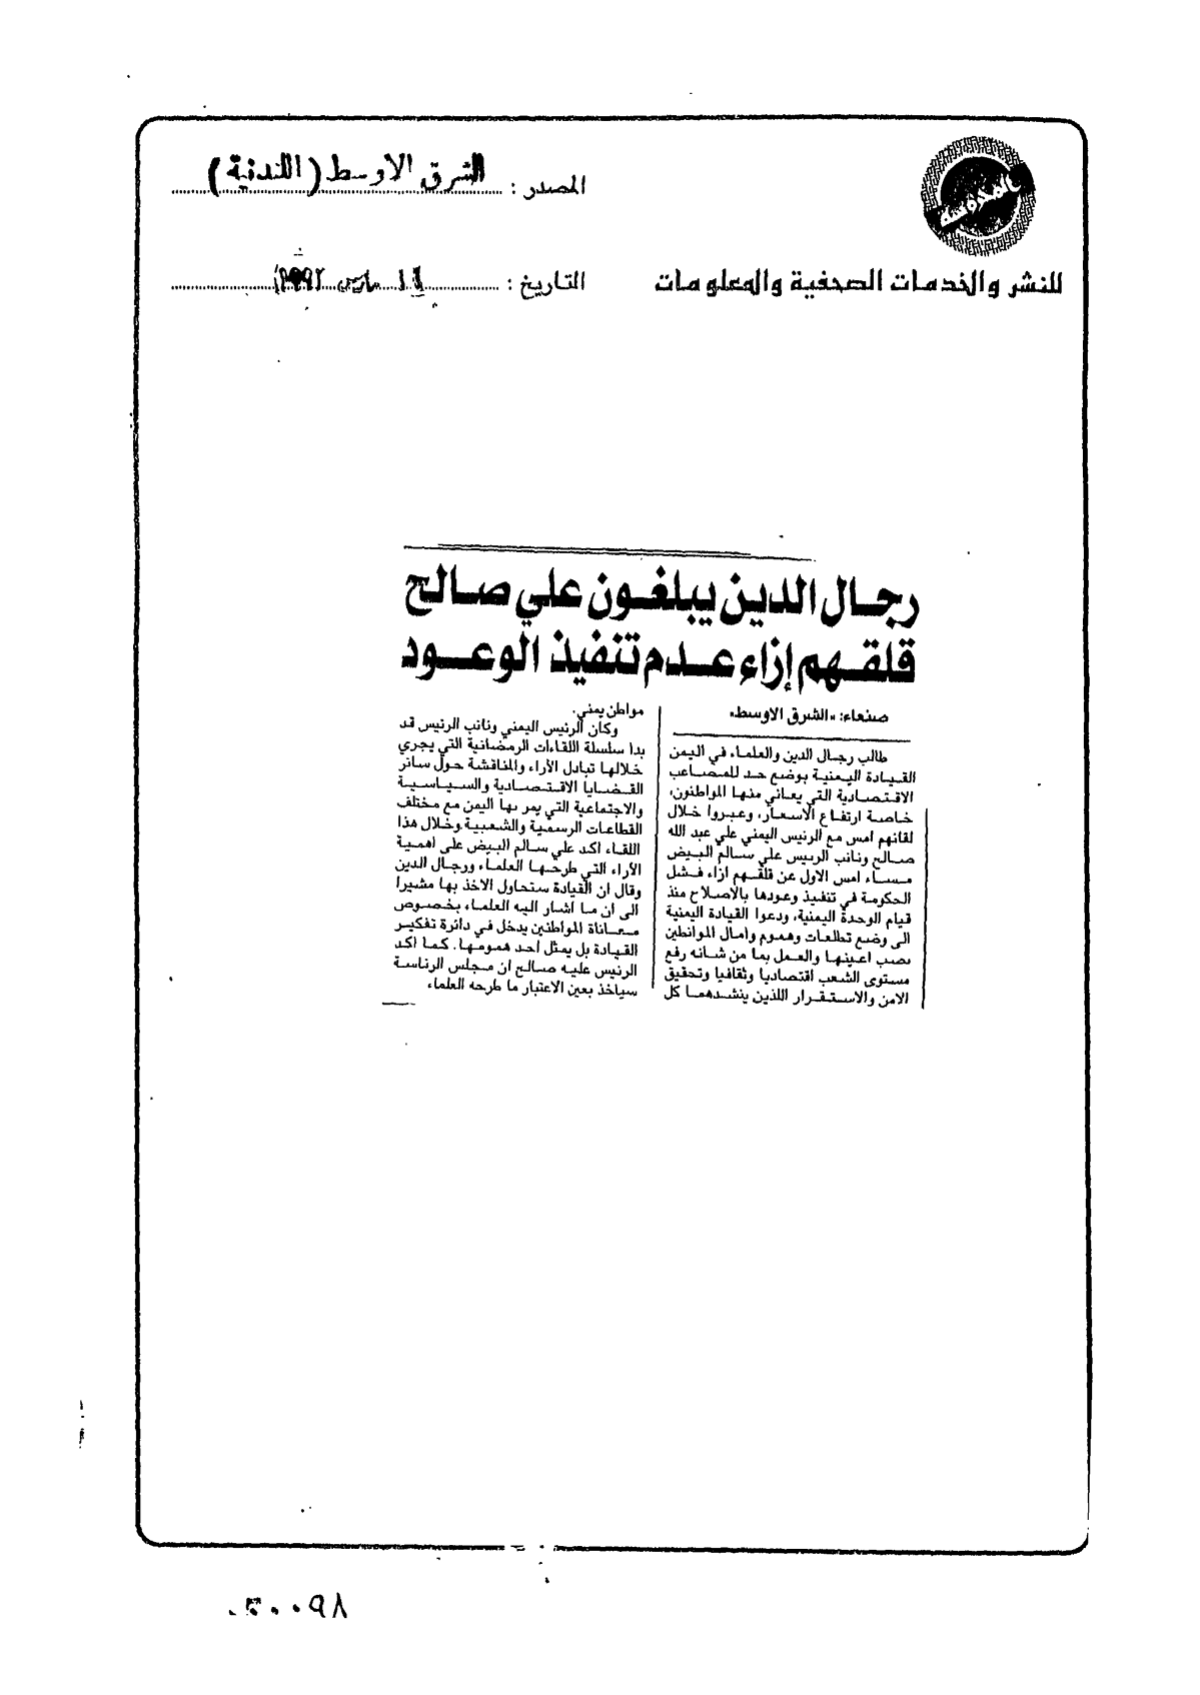 المصدر : الشرق الاوسط (اللندنية)
للنشر والخدمات الصحفية والمعلومات
التاريخ : مارس ١٩٩٢
رجال الدين يبلغون علي صالح
قلقهم إزاء عدم تنفيذ الوعود
صنعاء: «الشرق الاوسط»
طالب رجال الدين والعلماء في اليمن
القيادة اليمنية بوضع حد للمصاعب
الاقتصادية التي يعاني منها المواطنون،
خاصة ارتفاع الاسعار، وعبروا خلال
لقائهم امس مع الرئيس اليمني علي عبد الله
صالح ونائب الرئيس علي سالم البيض
مساء امس الاول عن قلقهم ازاء فشل
الحكومة في تنفيذ وعودها بالاصلاح منذ
قيام الوحدة اليمنية، ودعوا القيادة اليمنية
الى وضع تطلعات وهموم وامال الموانطين
نصب اعينها والعمل بما من شانه رفع
مستوى الشعب اقتصاديا وثقافيا وتحقيق
الامن والاستقرار اللذين ينشدهما كل
مواطن يمني.
وكان الرئيس اليمني ونائب الرئيس قد
بدا سلسلة اللقاءات الرمضانية التي يجري
خلالها تبادل الأراء والمناقشة حول سائر
القضايا الاقتصادية والسياسية
والاجتماعية التي يمر بها اليمن مع مختلف
القطاعات الرسمية والشعبية وخلال هذا
اللقاء اكد علي سالم البيض على اهمية
الأراء التي طرحها العلماء ورجال الدين
وقال ان القيادة ستحاول الاخذ بها مشيرا
الى ان ما اشار اليه العلماء بخصوص
معاناة المواطنين يدخل في دائرة تفكير
القيادة بل يمثل احد همومها. كما اكد
الرئيس عليه صالح ان مجلس الرئاسة
سياخذ بعين الاعتبار ما طرحه العلماء